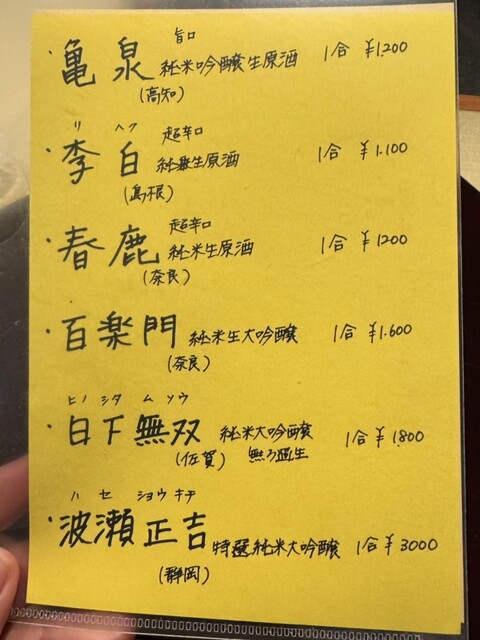 旨口
・亀泉 純米吟醸生原酒 1合 ¥1,200
(高知)
リ ハク 超辛口
・李白 純米生原酒 1合 ¥1.100
(島根)
超辛口
・春鹿 純米生原酒 1合 ¥1200
(奈良)
・百楽門 純米生大吟醸 1合 ¥1.600
(奈良)
ヒノ シタ ム ソウ
・日下無双 純米大吟醸 1合 ¥1.800
(佐賀) 無ろ過生
ハ セ ショウ キチ
・波瀬正吉 特選純米大吟醸 1合 ¥3000
(静岡)